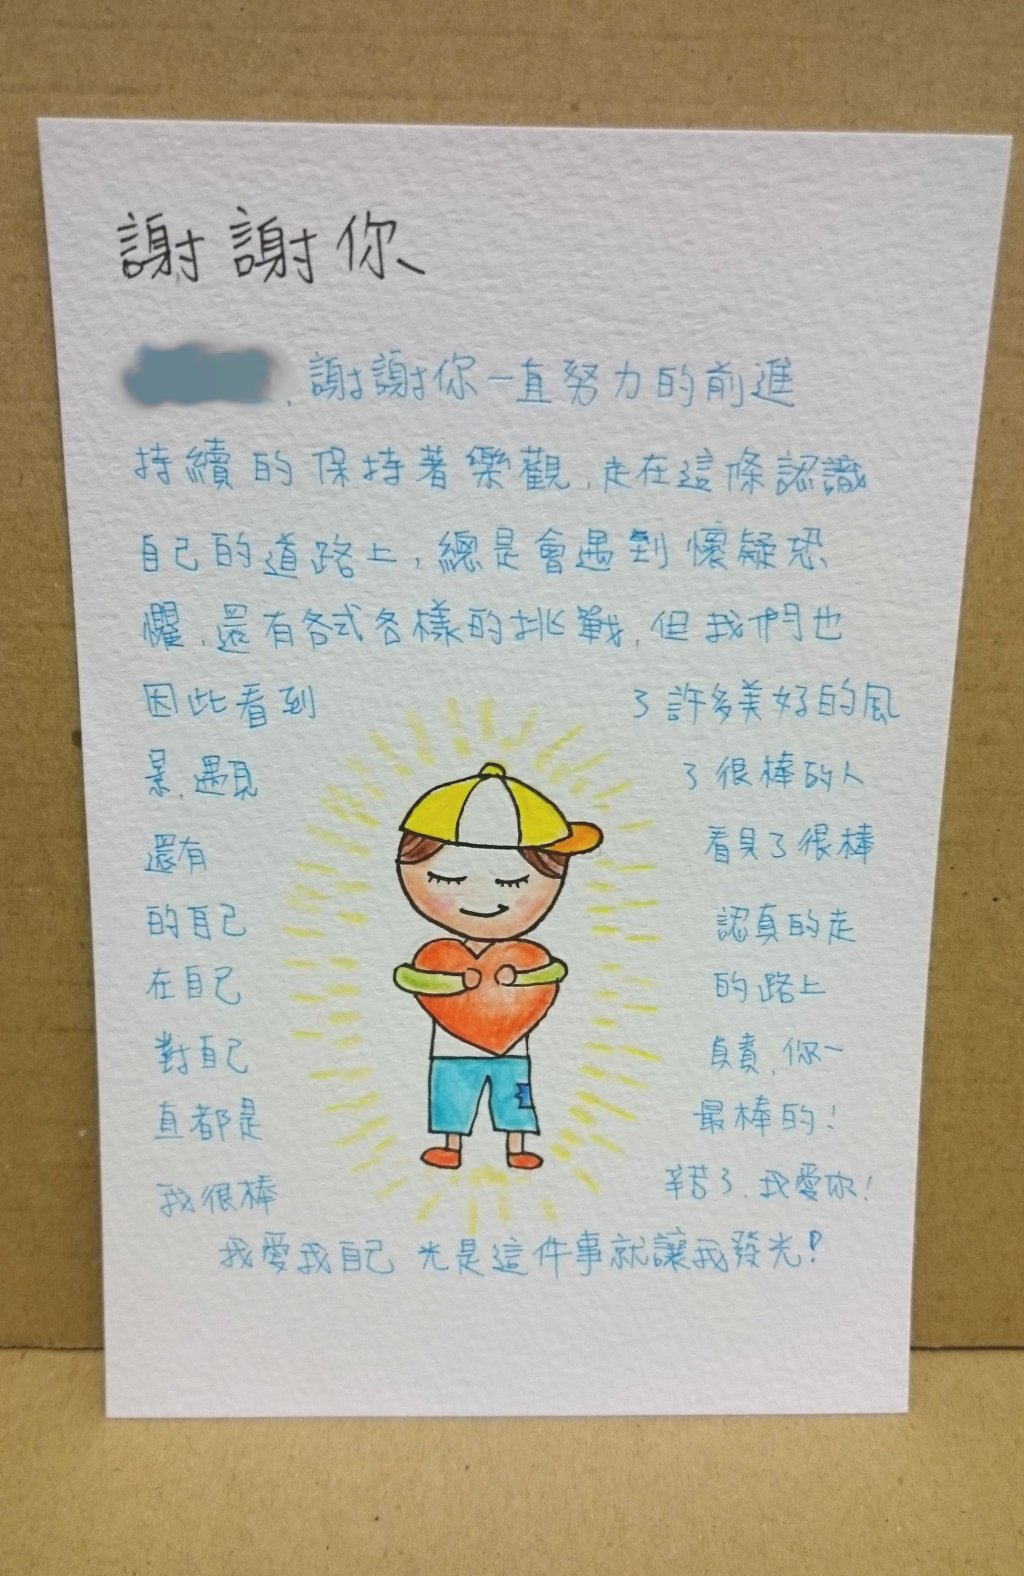 謝謝你
,謝謝你一直努力的前進
持續的保持著樂觀,走在這條認識
自己的道路上,總是會遇到懷疑恐
懼,還有各式各樣的挑戰,但我們也
因此看到了許多美好的風
景,遇見了很棒的人
還有看見了很棒
的自己認真的走
在自己的路上
對自己負責,你一
直都是最棒的!
我很棒辛苦了,我愛你!
我愛我自己 光是這件事就讓我發光!